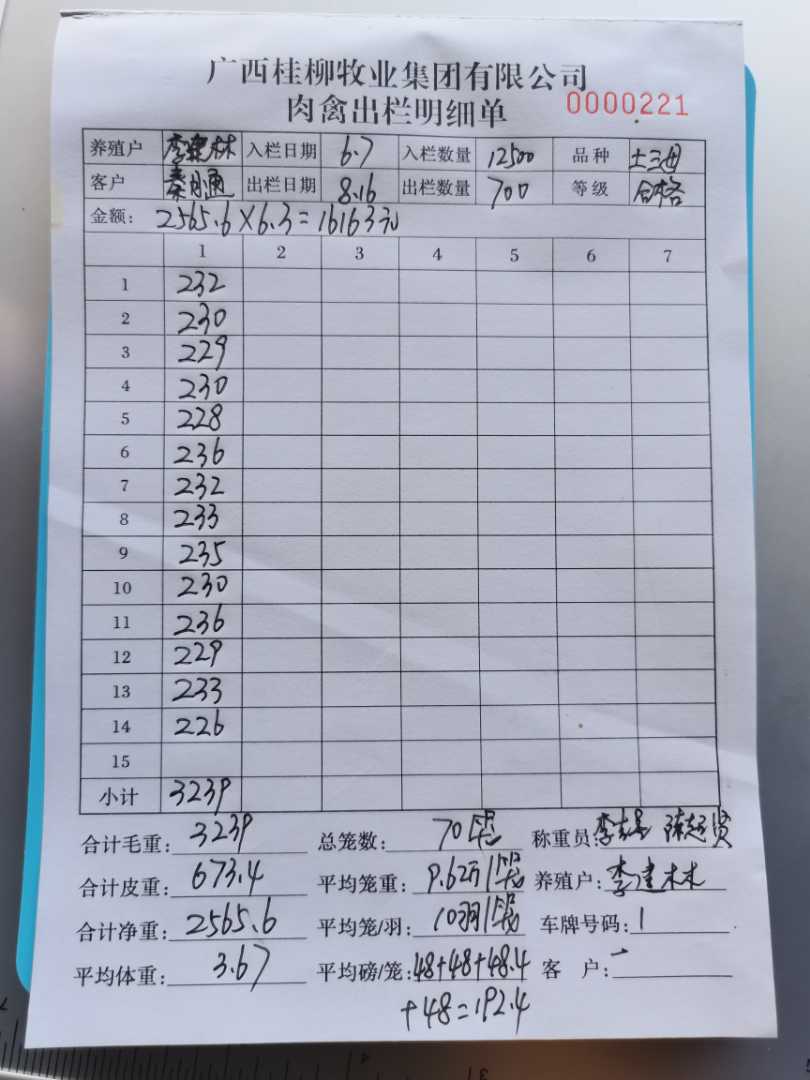 广西桂柳牧业集团有限公司
肉禽出栏明细单 0000221
养殖户 李建林 入栏日期 6.7 入栏数量 12500 品种 土三母
客户 出栏日期 8.16 出栏数量 700 等级 合格
金额: 2565.6×6.3=16163元
1 2 3 4 5 6 7
1 232
2 230
3 229
4 230
5 228
6 236
7 232
8 233
9 235
10 230
11 236
12 229
13 233
14 226
15
小计 3239
合计毛重: 3239 总笼数: 70笼 称重员:
合计皮重: 673.4 平均笼重: 9.62 养殖户: 李建林
合计净重: 2565.6 平均笼/羽: 10羽/笼 车牌号码:
平均体重: 3.67 平均磅/笼: 48+48+48.4 客 户:
+48=192.4